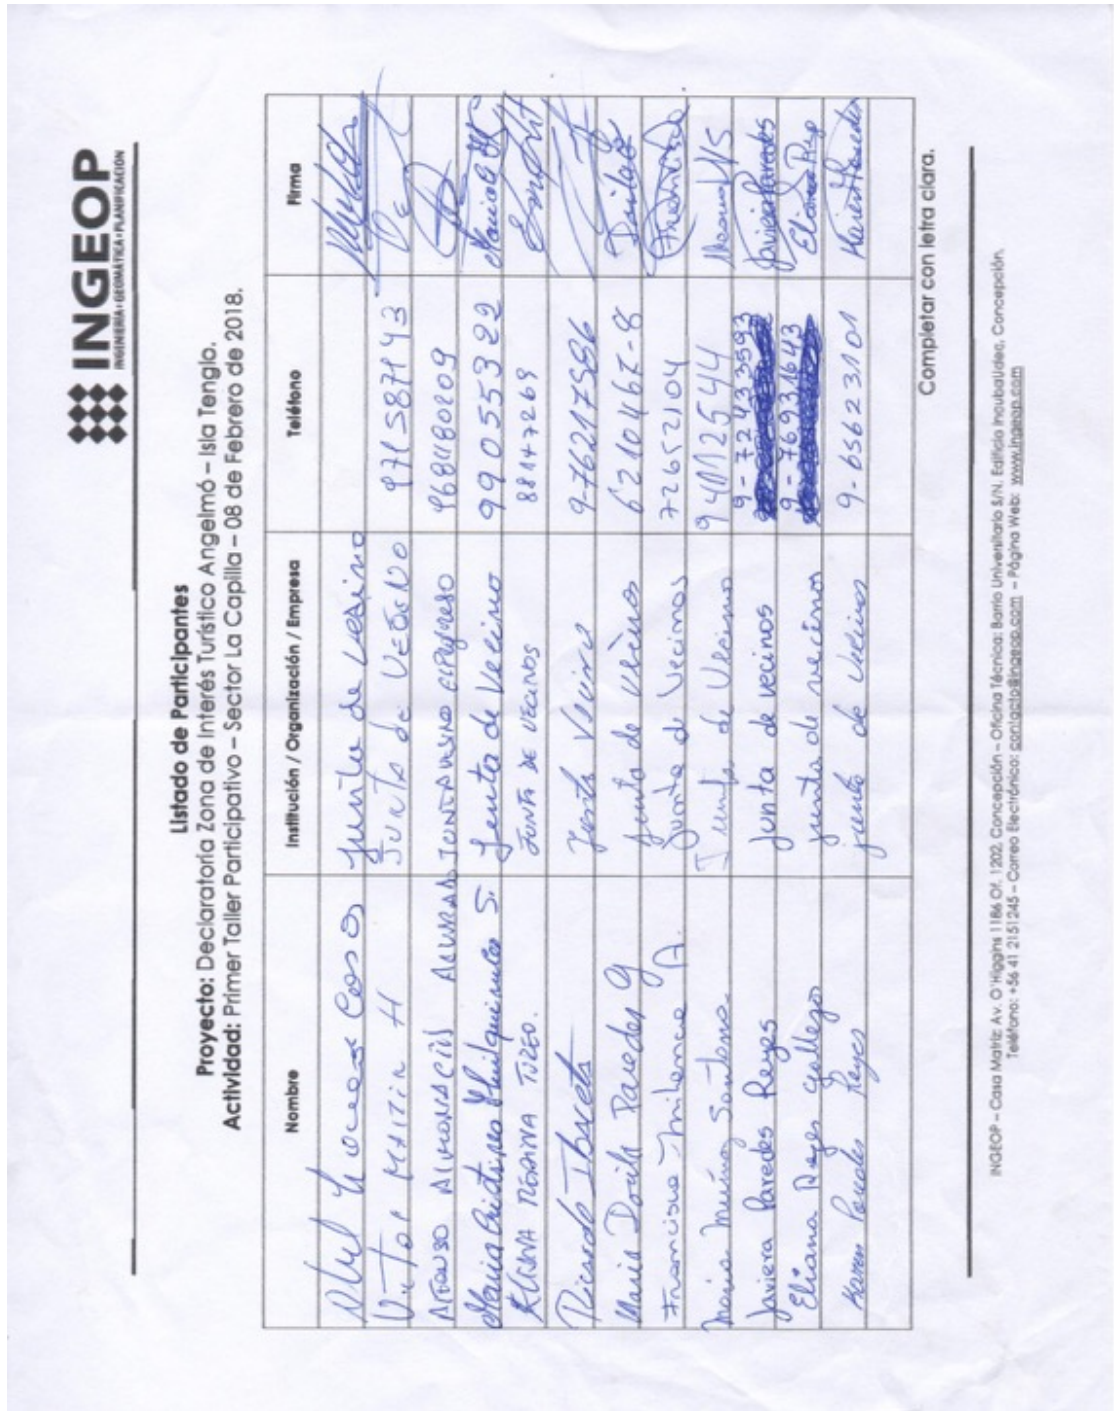 INGEOP
INGENIERÍA • GEOMÁTICA • PLANIFICACIÓN
Listado de Participantes
Proyecto: Declaratoria Zona de Interés Turístico Angelmó – Isla Tenglo.
Actividad: Primer Taller Participativo – Sector La Capilla – 08 de Febrero de 2018.
Nombre Institución / Organización / Empresa Teléfono Firma
junta de vesino
Victor H Junta de VESINO 971587143
Alvarado JUNTA VESINO EL PROGRESO 968480209
Maria Cristina S. Junta de Vecino 990553322
JUNTA DE VECINOS 88147269
Ricardo 9-76217586
Maria Dorila Paredes G Junta de Vecinos 6210467-8
Francisca A. Junta de Vecinos 72652104
Maria Muñoz Santana. Junta de Vecino 94012544
Javiera Paredes Reyes junta de vecinos 9-72433593 Javiera Paredes
Eliana Reyes Gallegos junta de vecinos 9-76931643 Eliana Rey
Karen Paredes Reyes junta de Vecinos 9-65623101
Completar con letra clara.
INGEOP – Casa Matriz: Av. O'Higgins 1186 Of. 1202, Concepción – Oficina Técnica: Barrio Universitario S/N. Edificio Incubaudec, Concepción.
Teléfono: +56 41 2151245 – Correo Electrónico: contacto@ingeop.com – Página Web: www.ingeop.com